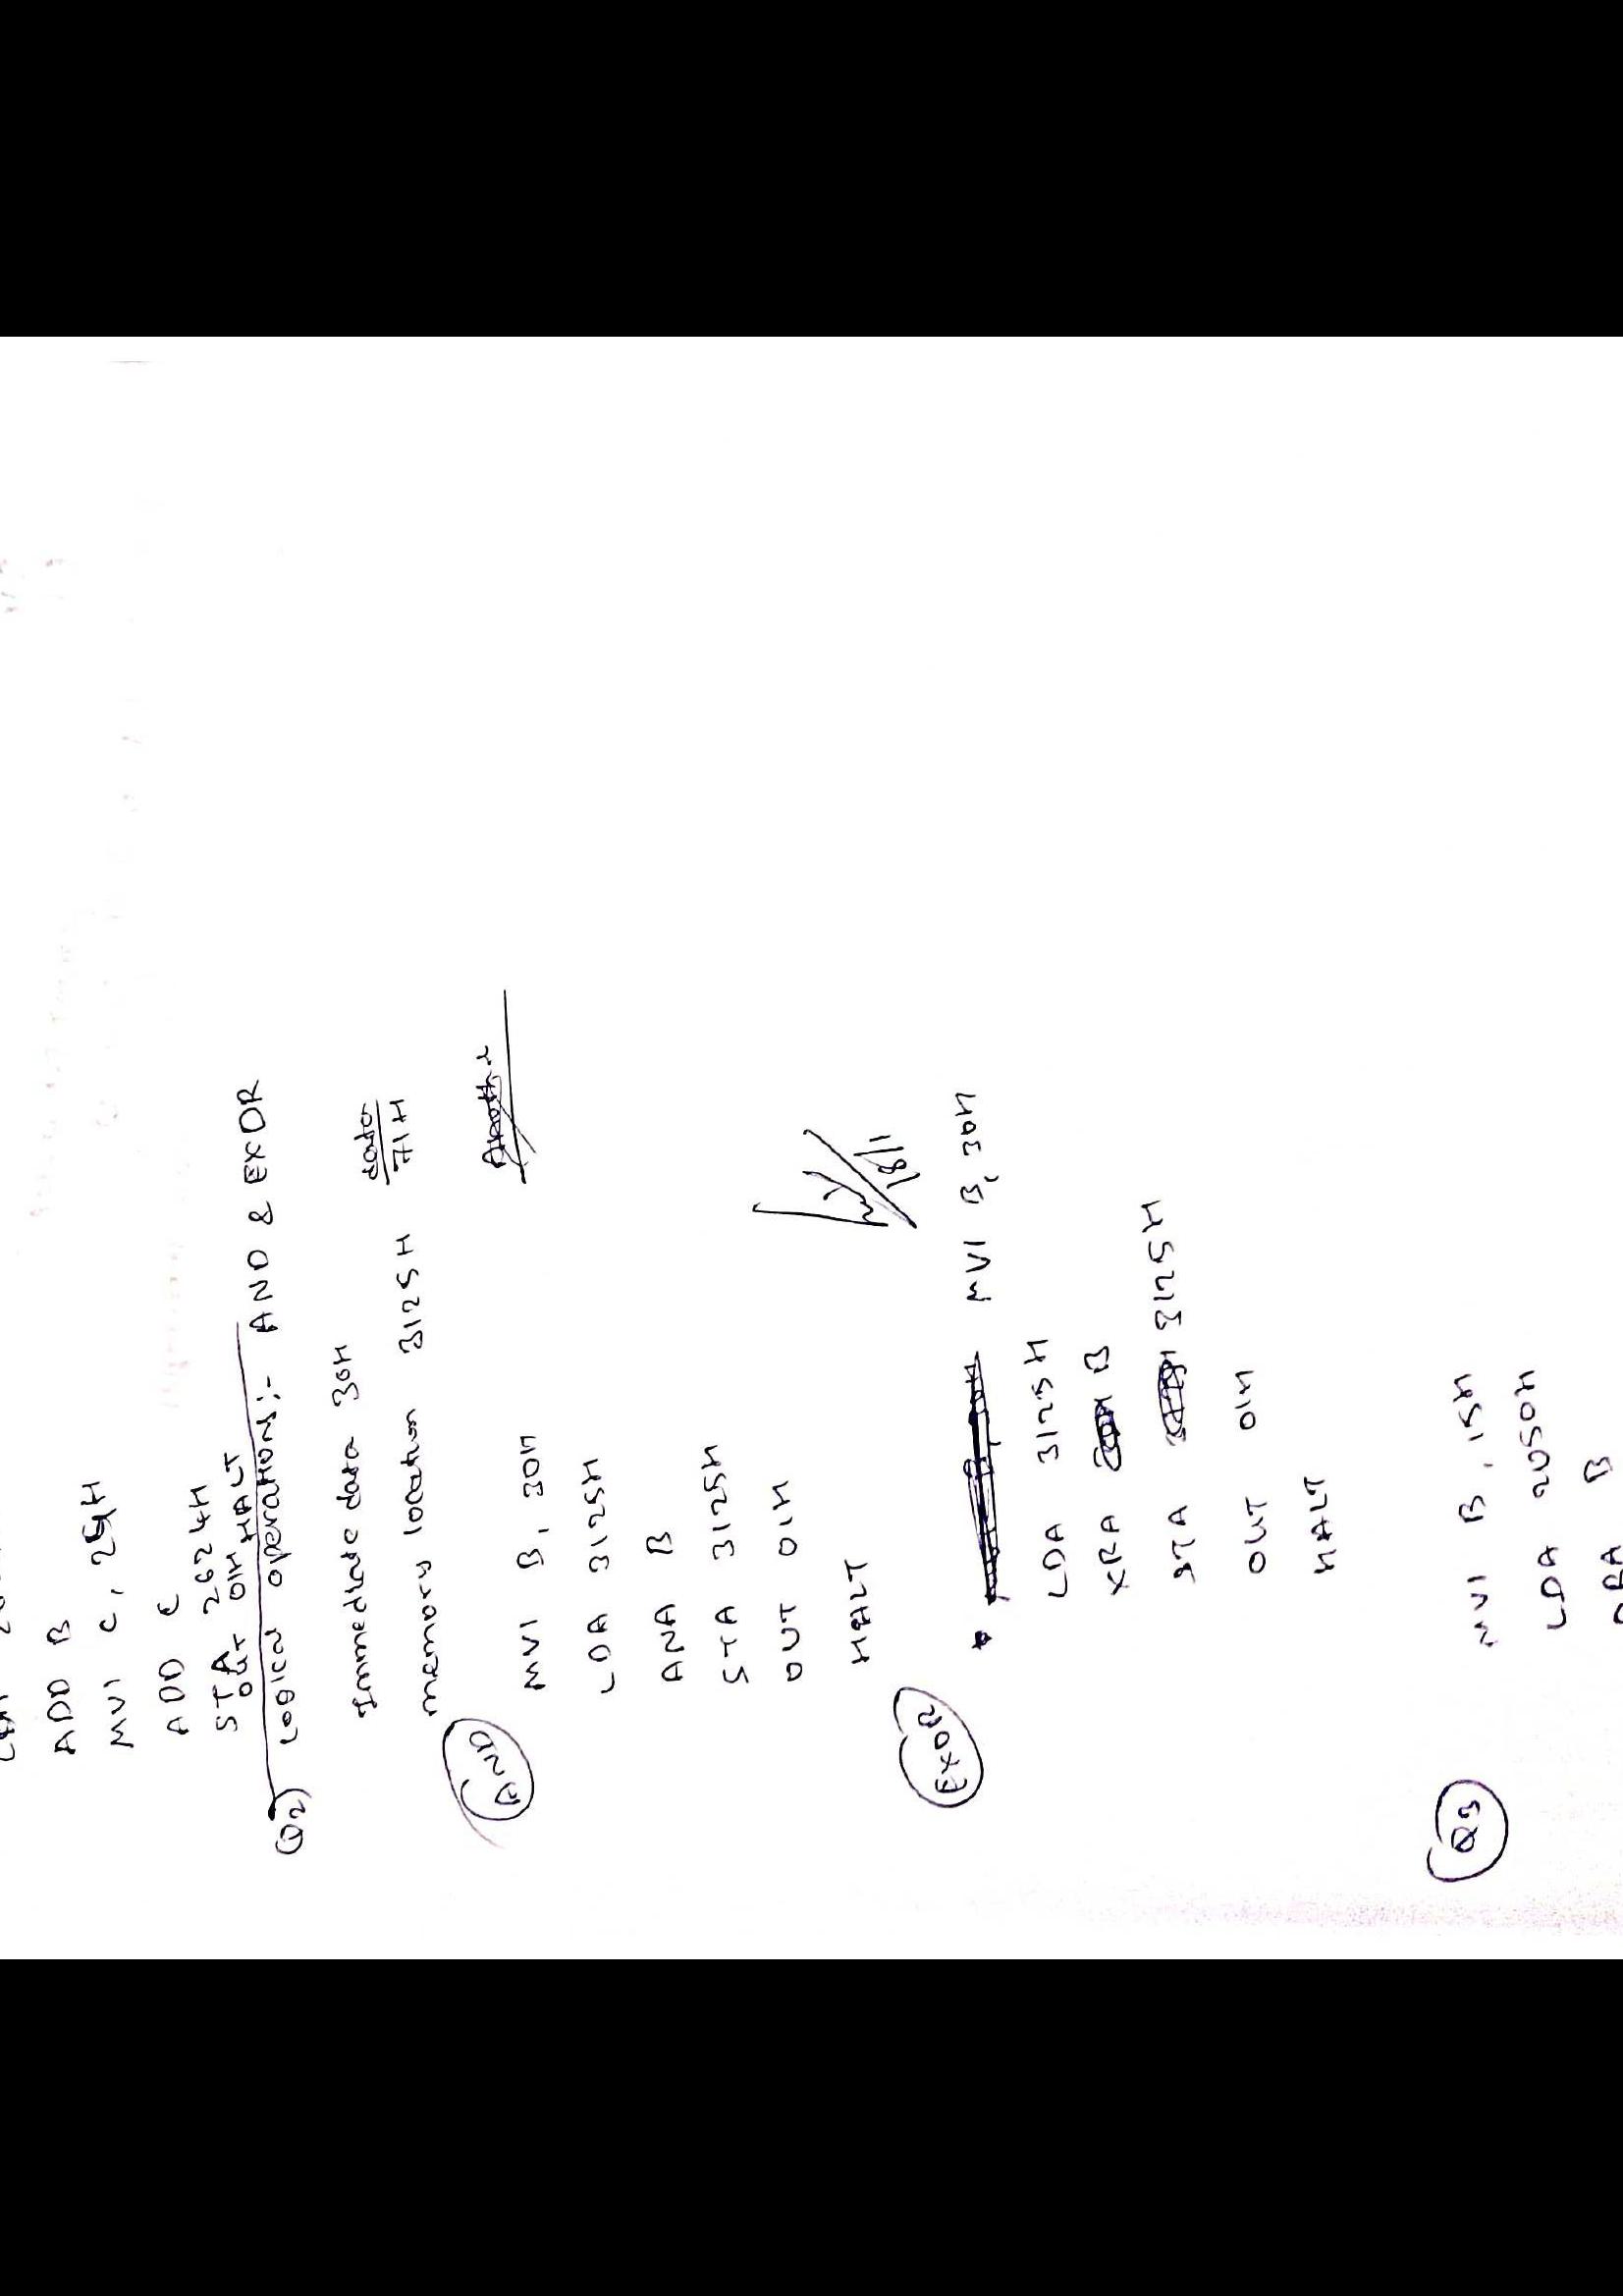 ADD B
MVI C, 25H
ADD C
STA 2624H
OUT 01H HALT
Q2) Logical operations:- AND & EXOR
Immediate data 30H
data
memory location 3125H 71H
AND
MVI B, 30H
LDA 3125H
ANA B
STA 3125H
OUT 01H
HALT
EXOR
MVI B, 30H
LDA 3125H
XRA B
STA 3125H
OUT 01H
HALT
Q3
MVI B, 15H
LDA 2050H
ORA B